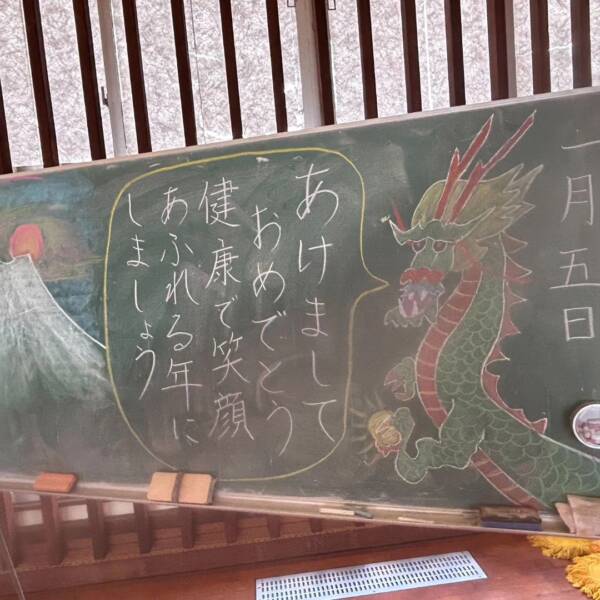 一月五日
あけまして
おめでとう
健康で笑顔
あふれる年に
しましょう